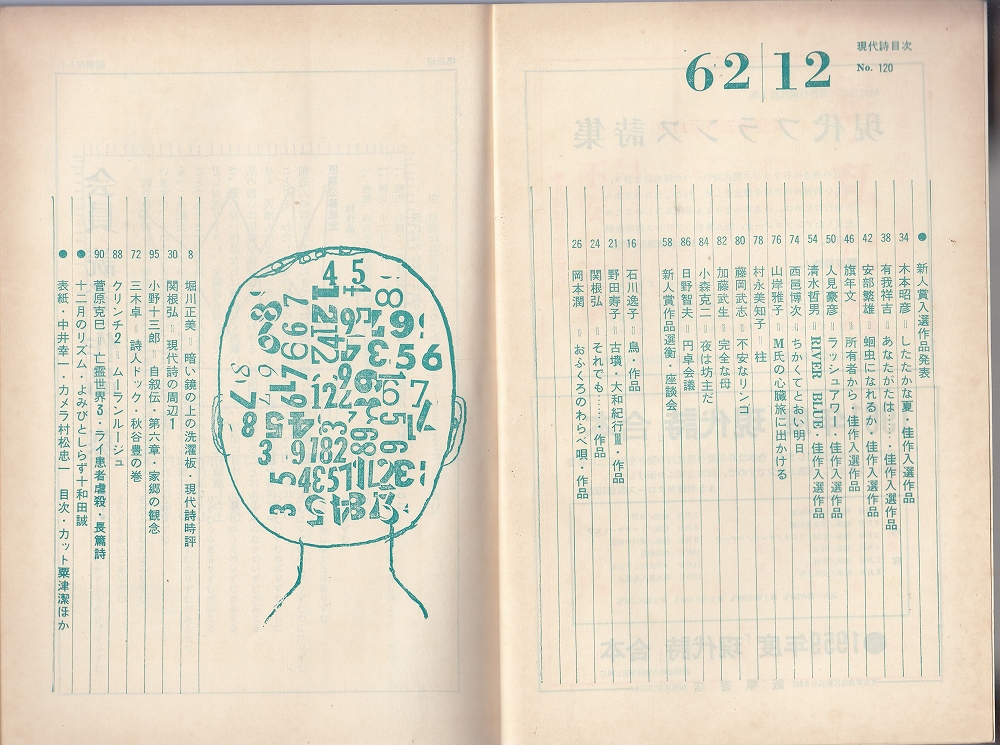 現代詩目次
No. 120
62 | 12
● 新人賞入選作品発表
34 木本昭彦＝したたかな夏・佳作入選作品
38 有我祥吉＝あなたがたは……・佳作入選作品
42 安部繁雄＝蛔虫になれるか・佳作入選作品
46 旗年文＝所有者から・佳作入選作品
50 人見豪彦＝ラッシュアワー・佳作入選作品
54 清水哲男＝RIVER BLUE・佳作入選作品
74 西邑博次＝ちかくてとおい明日
76 山岸雅子＝M氏の心臓旅に出かける
78 村永美知子＝柱
80 藤岡武志＝不安なリンゴ
82 加藤武生＝完全な母
84 小森克二＝夜は坊主だ
86 日野智夫＝円卓会議
58 新人賞作品選衡・座談会
16 石川逸子＝鳥・作品
21 野田寿子＝古墳・大和紀行Ⅲ・作品
24 関根弘＝それでも……・作品
26 岡本潤＝おふくろのわらべ唄・作品
8 堀川正美＝暗い鏡の上の洗濯板 現代詩時評
30 関根弘＝現代詩の周辺1
95 小野十三郎＝自叙伝・第六章・家郷の観念
72 三木卓＝詩人ドック・秋谷豊の巻
88 クリンチ2＝ムーランルージュ
90 菅原克巳＝亡霊世界3・ライ患者虐殺・長篇詩
● 十二月のリズム・よみびとしらず十和田誠
● 表紙・中井幸一・カメラ村松忠一 目次・カット粟津潔ほか